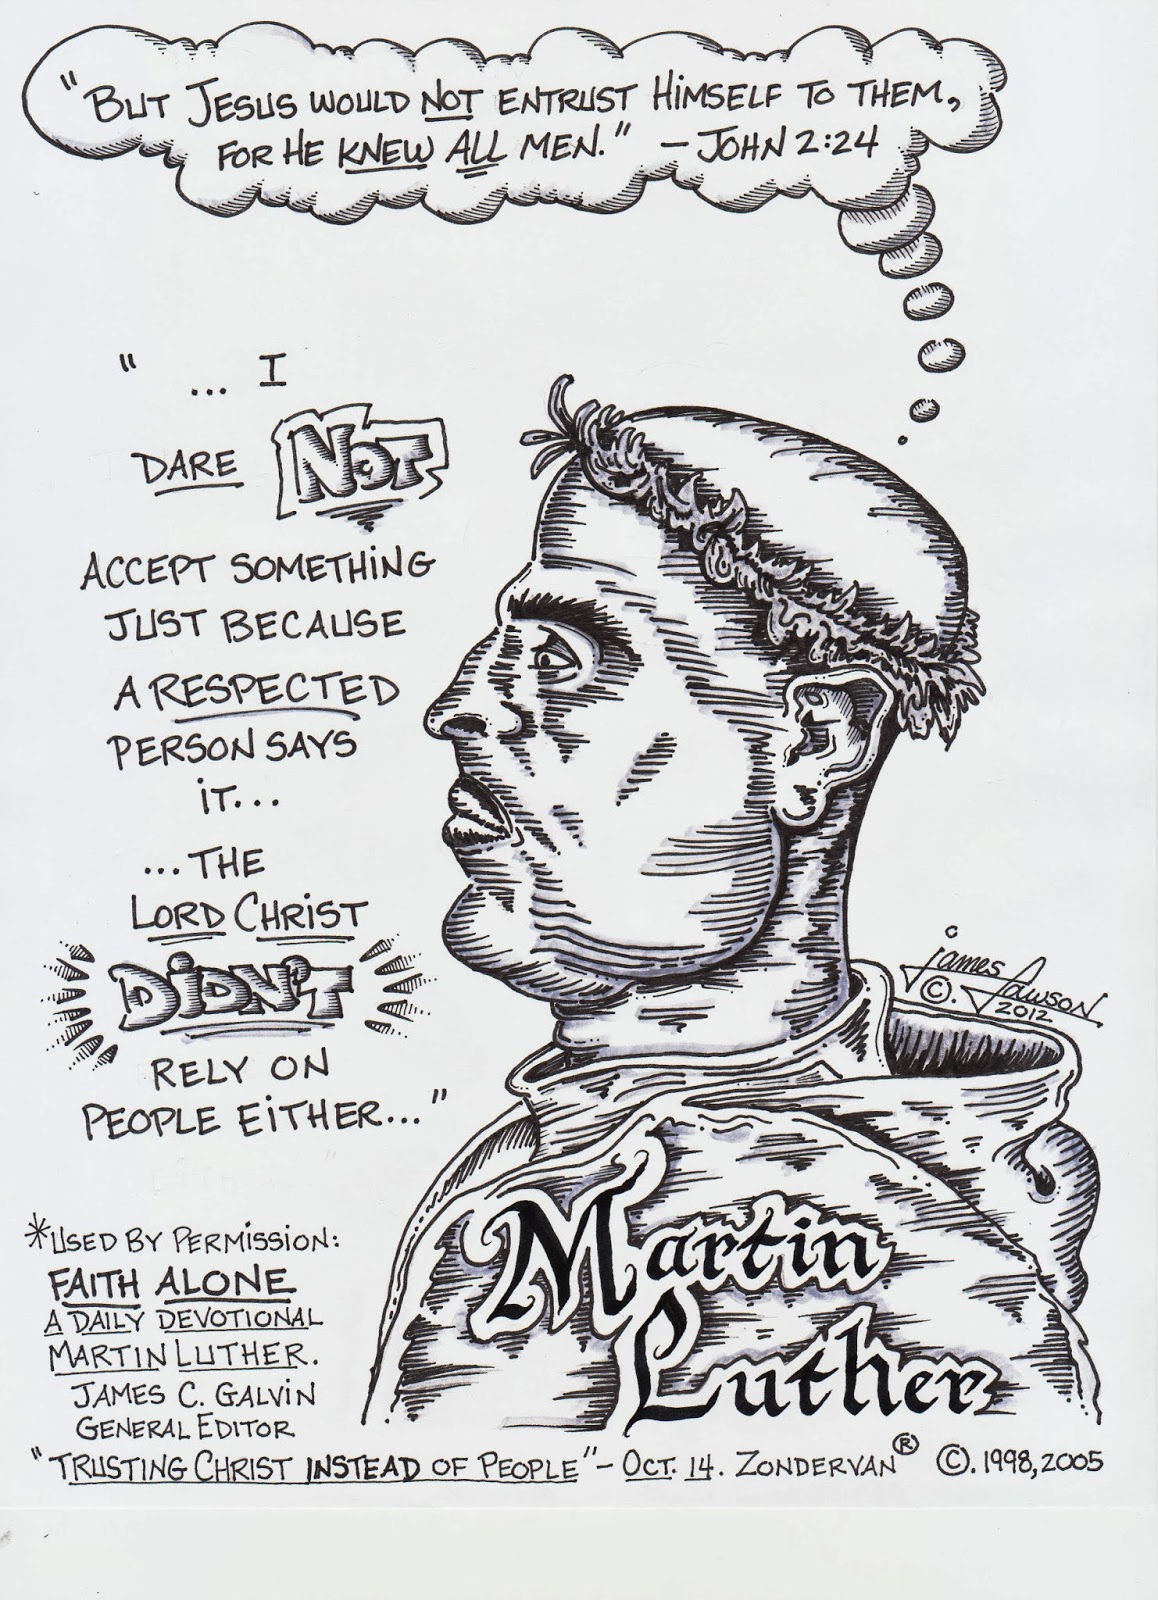 "But Jesus would not entrust Himself to them,
for He knew all men." - John 2:24
" ... I
dare NOT
accept something
just because
a respected
person says
it...
...the
Lord Christ
DiDN'T
rely on
people either..."
james Lawson
©. 2012
*Used by permission:
FAITH ALONE
A DAILY DEVOTIONAL
MARTIN LUTHER.
JAMES C. GALVIN
GENERAL EDITOR
"TRUSTING CHRIST INSTEAD OF PEOPLE" - OCT. 14. ZONDERVAN® ©. 1998, 2005
Martin
Luther